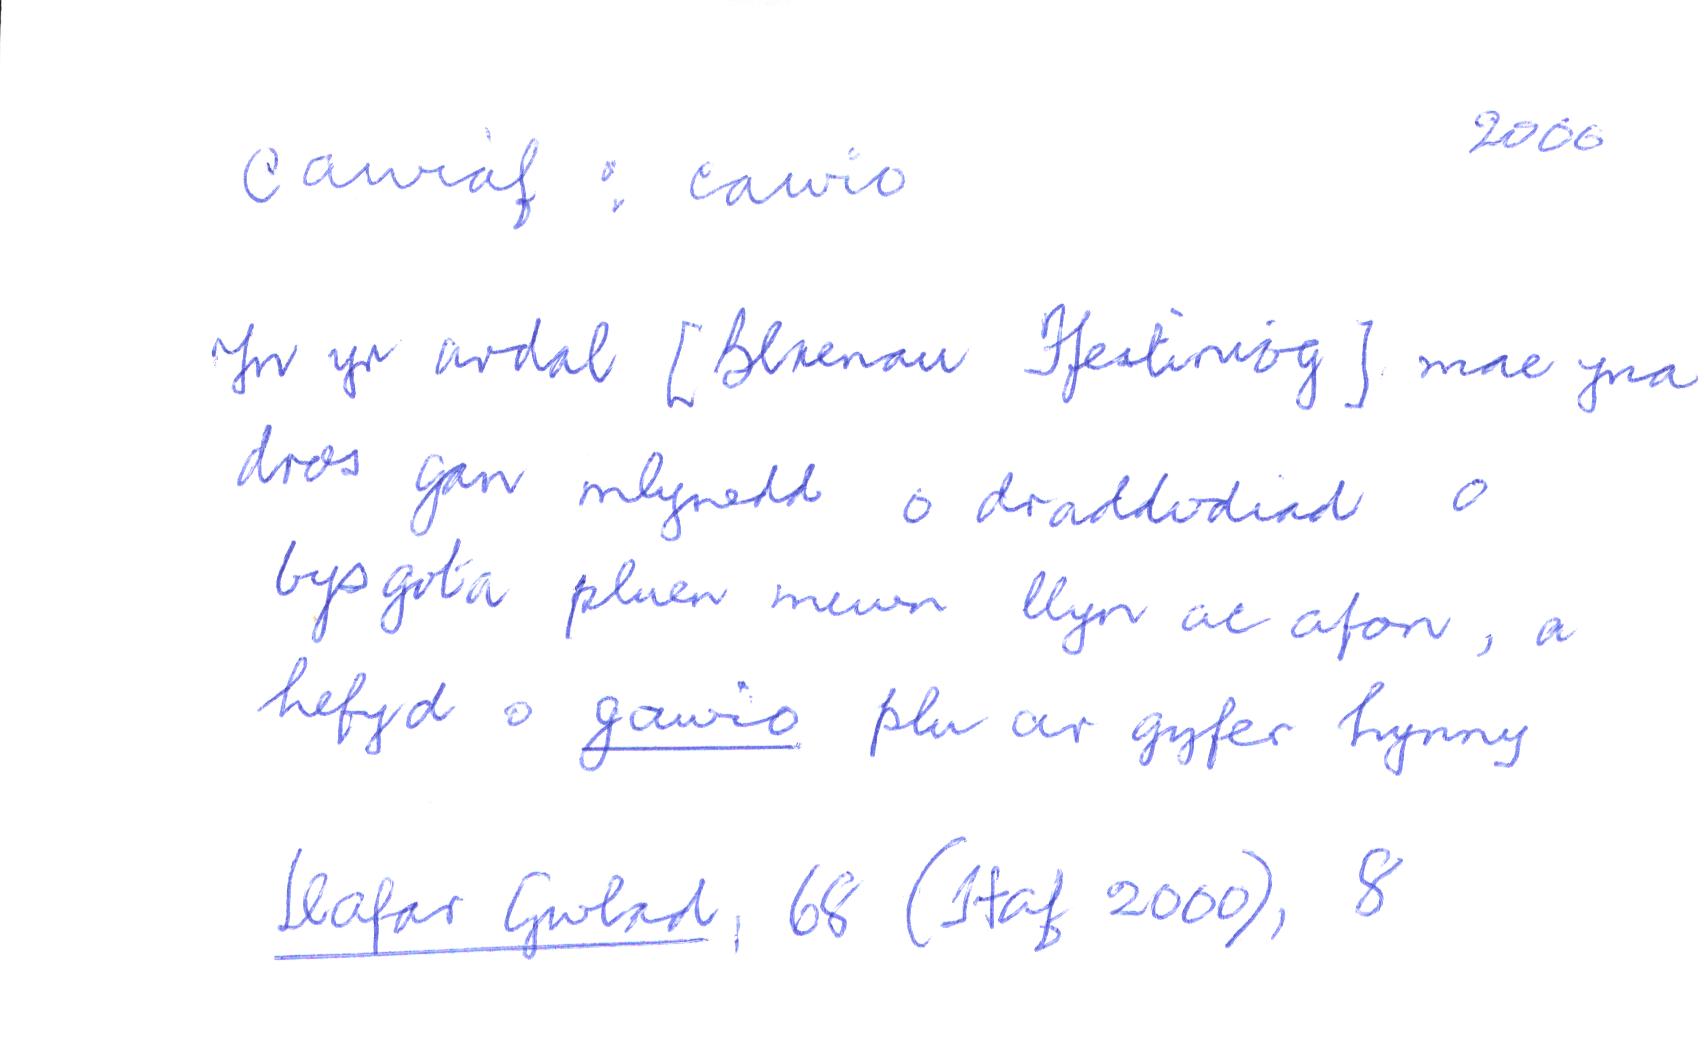 2000
cawiaf : cawio
Yn yr ardal [Blaenau Ffestiniog] mae yna
dros gan mlynedd o draddodiad o
bysgota pluen mewn llyn ac afon, a
hefyd o gawio plu ar gyfer hynny
Llafar Gwlad, 68 (Haf 2000), 8